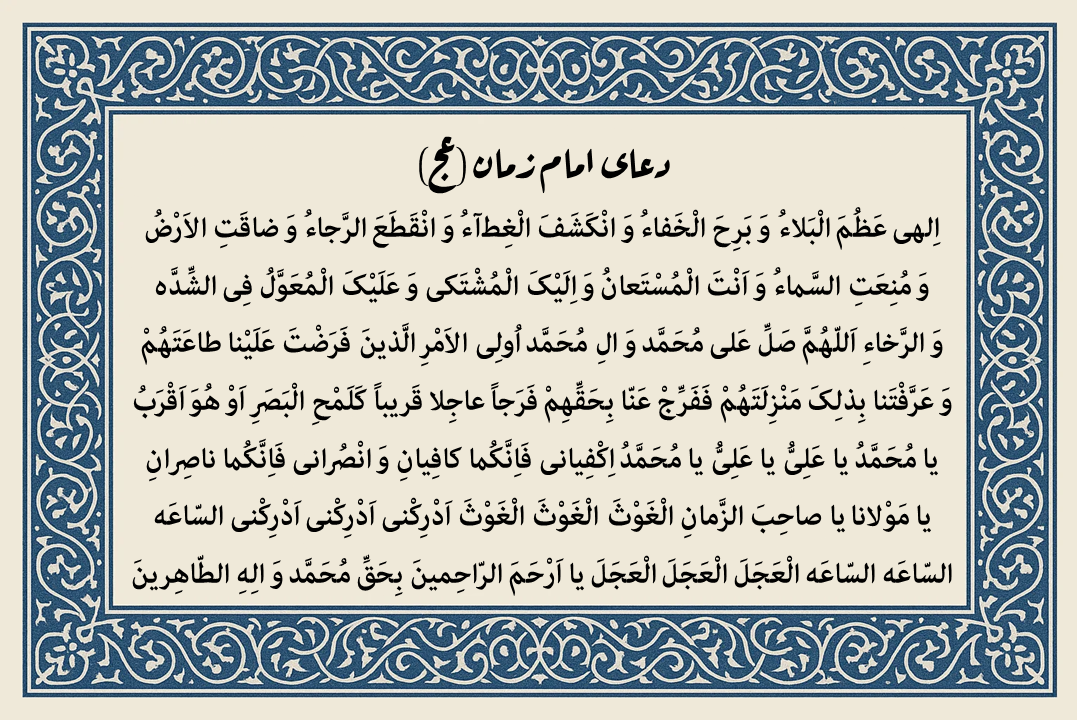 دعای امام زمان (عج)
اِلهی عَظُمَ الْبَلاءُ وَ بَرِحَ الْخَفاءُ وَ انْکَشَفَ الْغِطآءُ وَ انْقَطَعَ الرَّجاءُ وَ ضاقَتِ الاَرْضُ
وَ مُنِعَتِ السَّماءُ وَ اَنْتَ الْمُسْتَعانُ وَ اِلَیْکَ الْمُشْتَکی وَ عَلَیْکَ الْمُعَوَّلُ فِی الشِّدَّه
وَ الرَّخاءِ اَللّهُمَّ صَلِّ عَلی مُحَمَّد وَ الِ مُحَمَّد اُولِی الاَمْرِ الَّذینَ فَرَضْتَ عَلَیْنا طاعَتَهُمْ
وَ عَرَّفْتَنا بِذلِکَ مَنْزِلَتَهُمْ فَفَرِّجْ عَنّا بِحَقِّهِمْ فَرَجاً عاجِلا قَریباً کَلَمْحِ الْبَصَرِ اَوْ هُوَ اَقْرَبُ
یا مُحَمَّدُ یا عَلِیُّ یا عَلِیُّ یا مُحَمَّدُ اِکْفِیانی فَاِنَّکُما کافِیانِ وَ انْصُرانی فَاِنَّکُما ناصِرانِ
یا مَوْلانا یا صاحِبَ الزَّمانِ الْغَوْثَ الْغَوْثَ الْغَوْثَ اَدْرِکْنی اَدْرِکْنی اَدْرِکْنی السّاعَه
السّاعَه السّاعَه الْعَجَلَ الْعَجَلَ الْعَجَلَ یا اَرْحَمَ الرّاحِمینَ بِحَقِّ مُحَمَّد وَ الِهِ الطّاهِرینَ